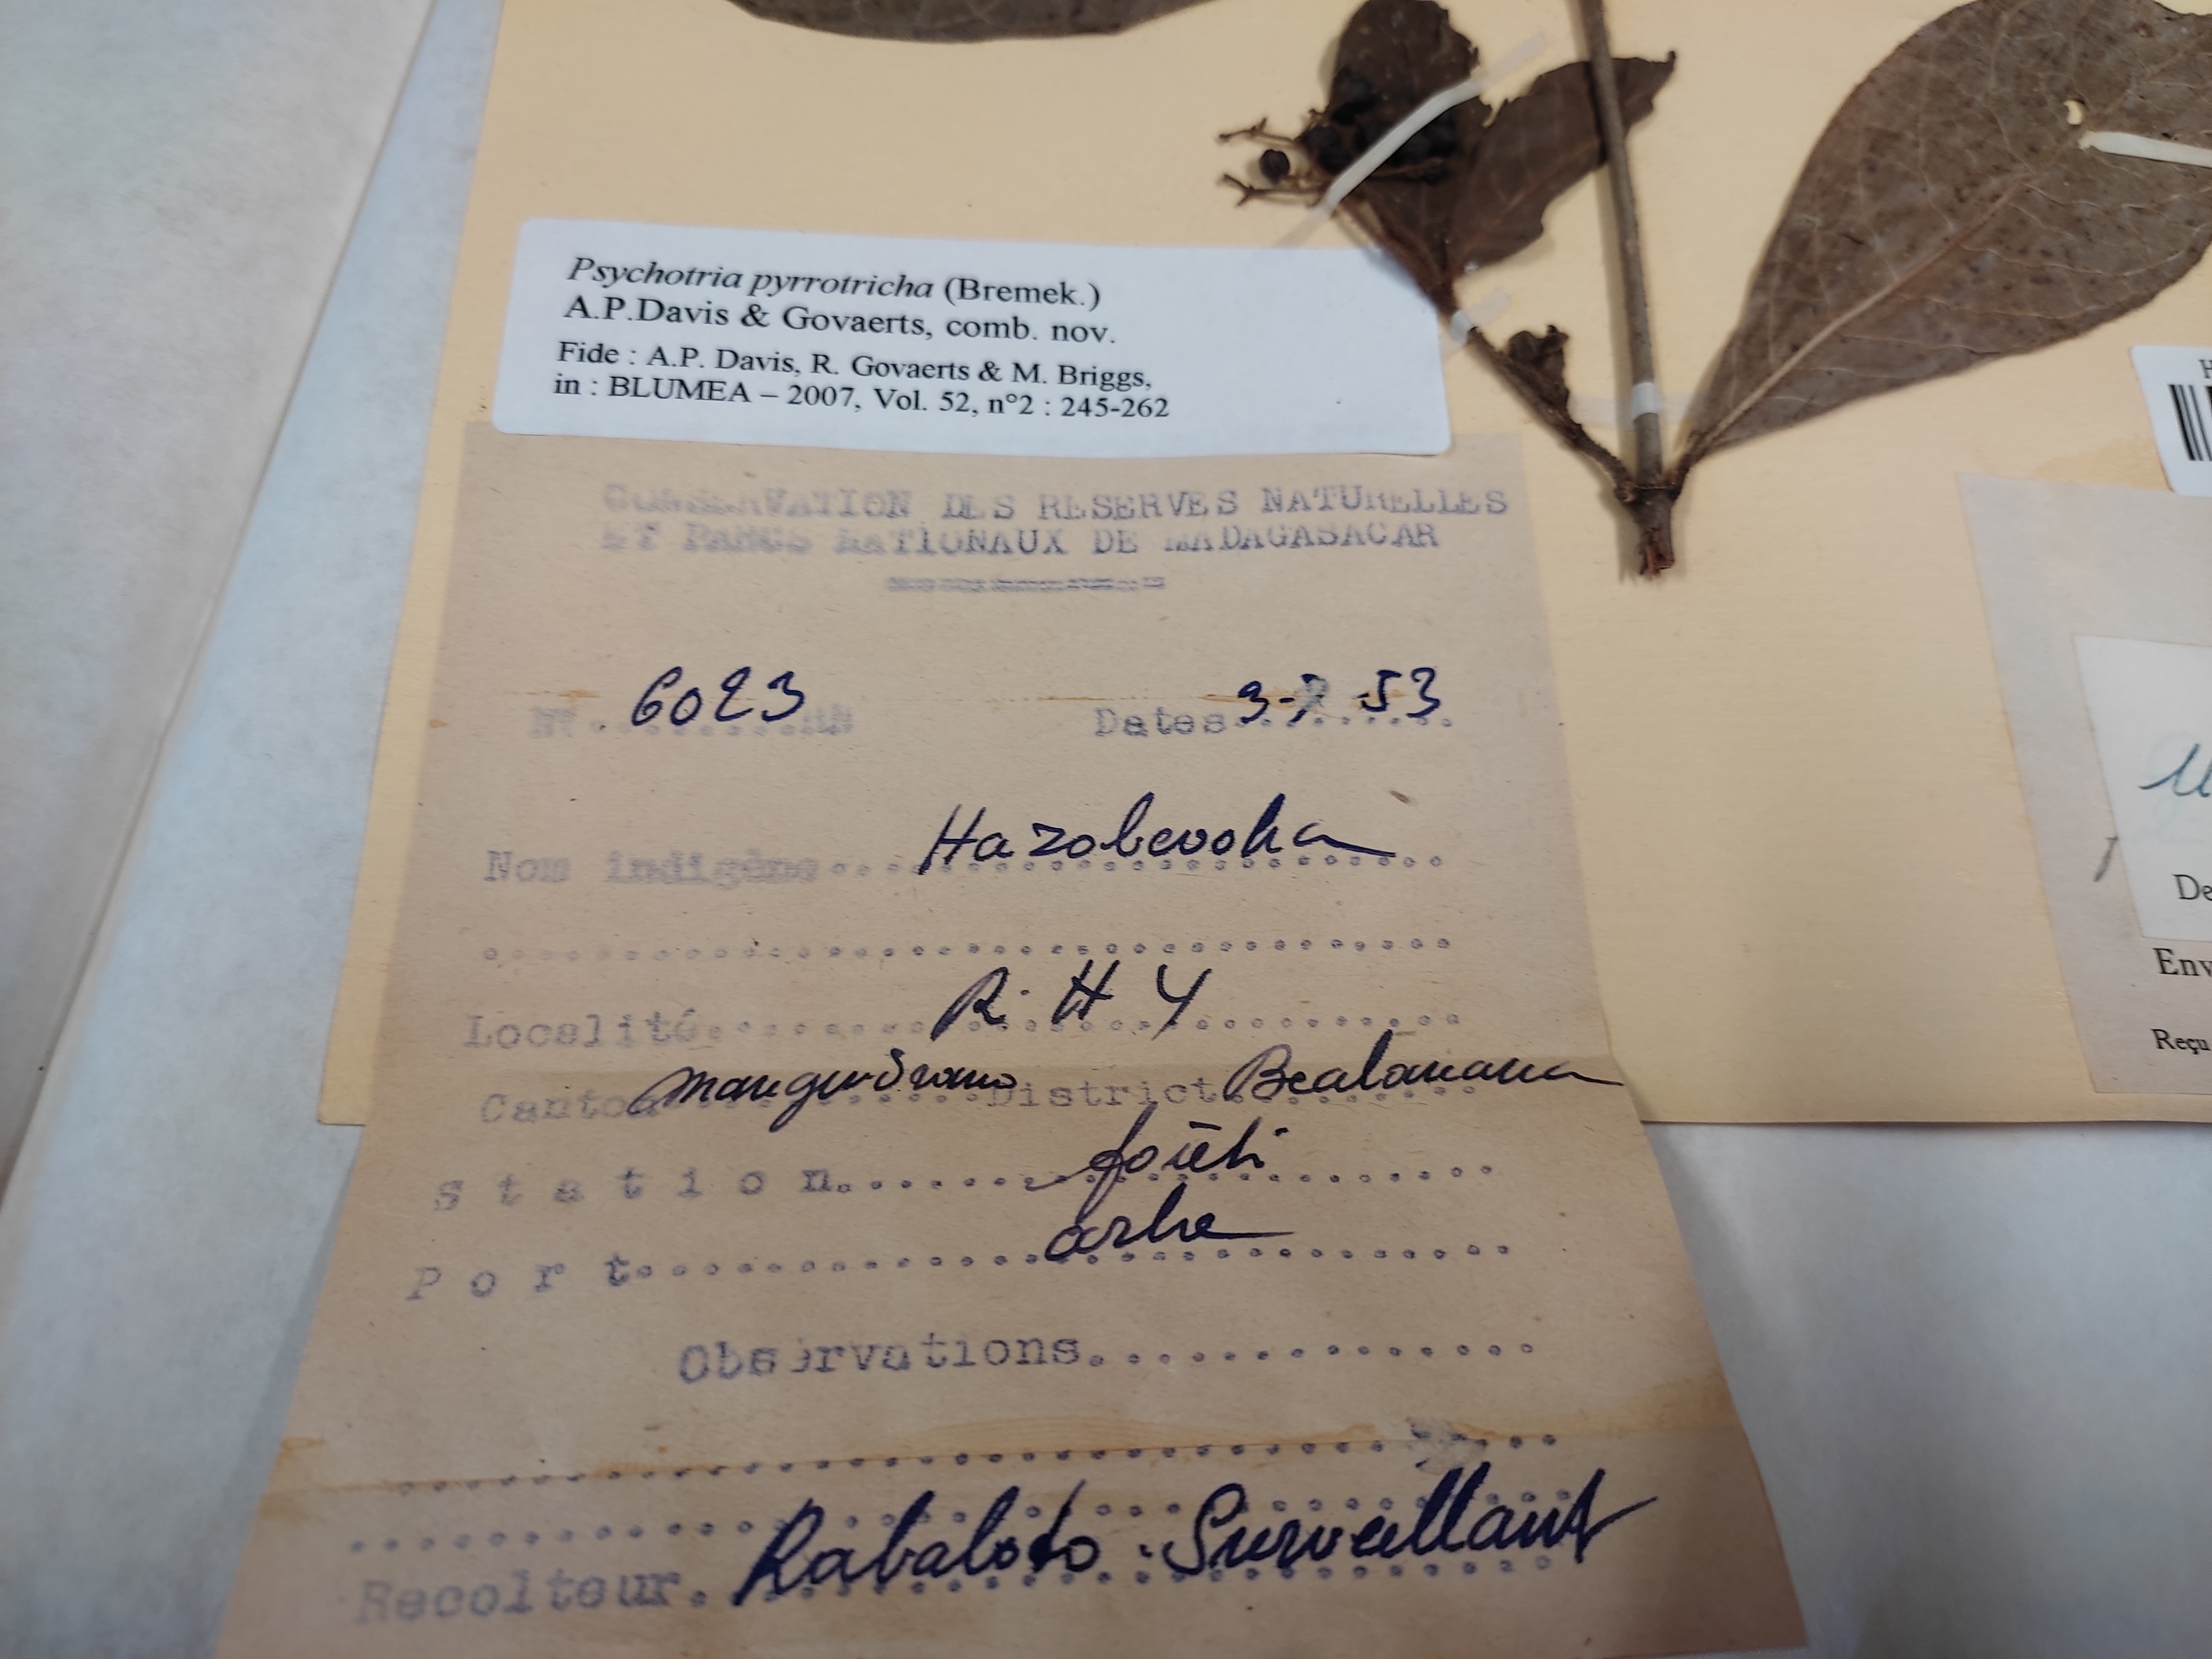 Psychotria pyrrotricha (Bremek.)
A.P.Davis & Govaerts, comb. nov.
Fide : A.P. Davis, R. Govaerts & M. Briggs,
in : BLUMEA – 2007, Vol. 52, n°2 : 245-262
CONSERVATION DES RESERVES NATURELLES
ET PARCS NATIONAUX DE MADAGASACAR
N°. 6023 RN Dates 53
Nom indigène Hazobevoha
Localité R. H 4
Canton District Bealanana
Station forêt
Port arbe
Observations
Recolteur. Rabaloto : Surveillant
H
De
Env
Reçu